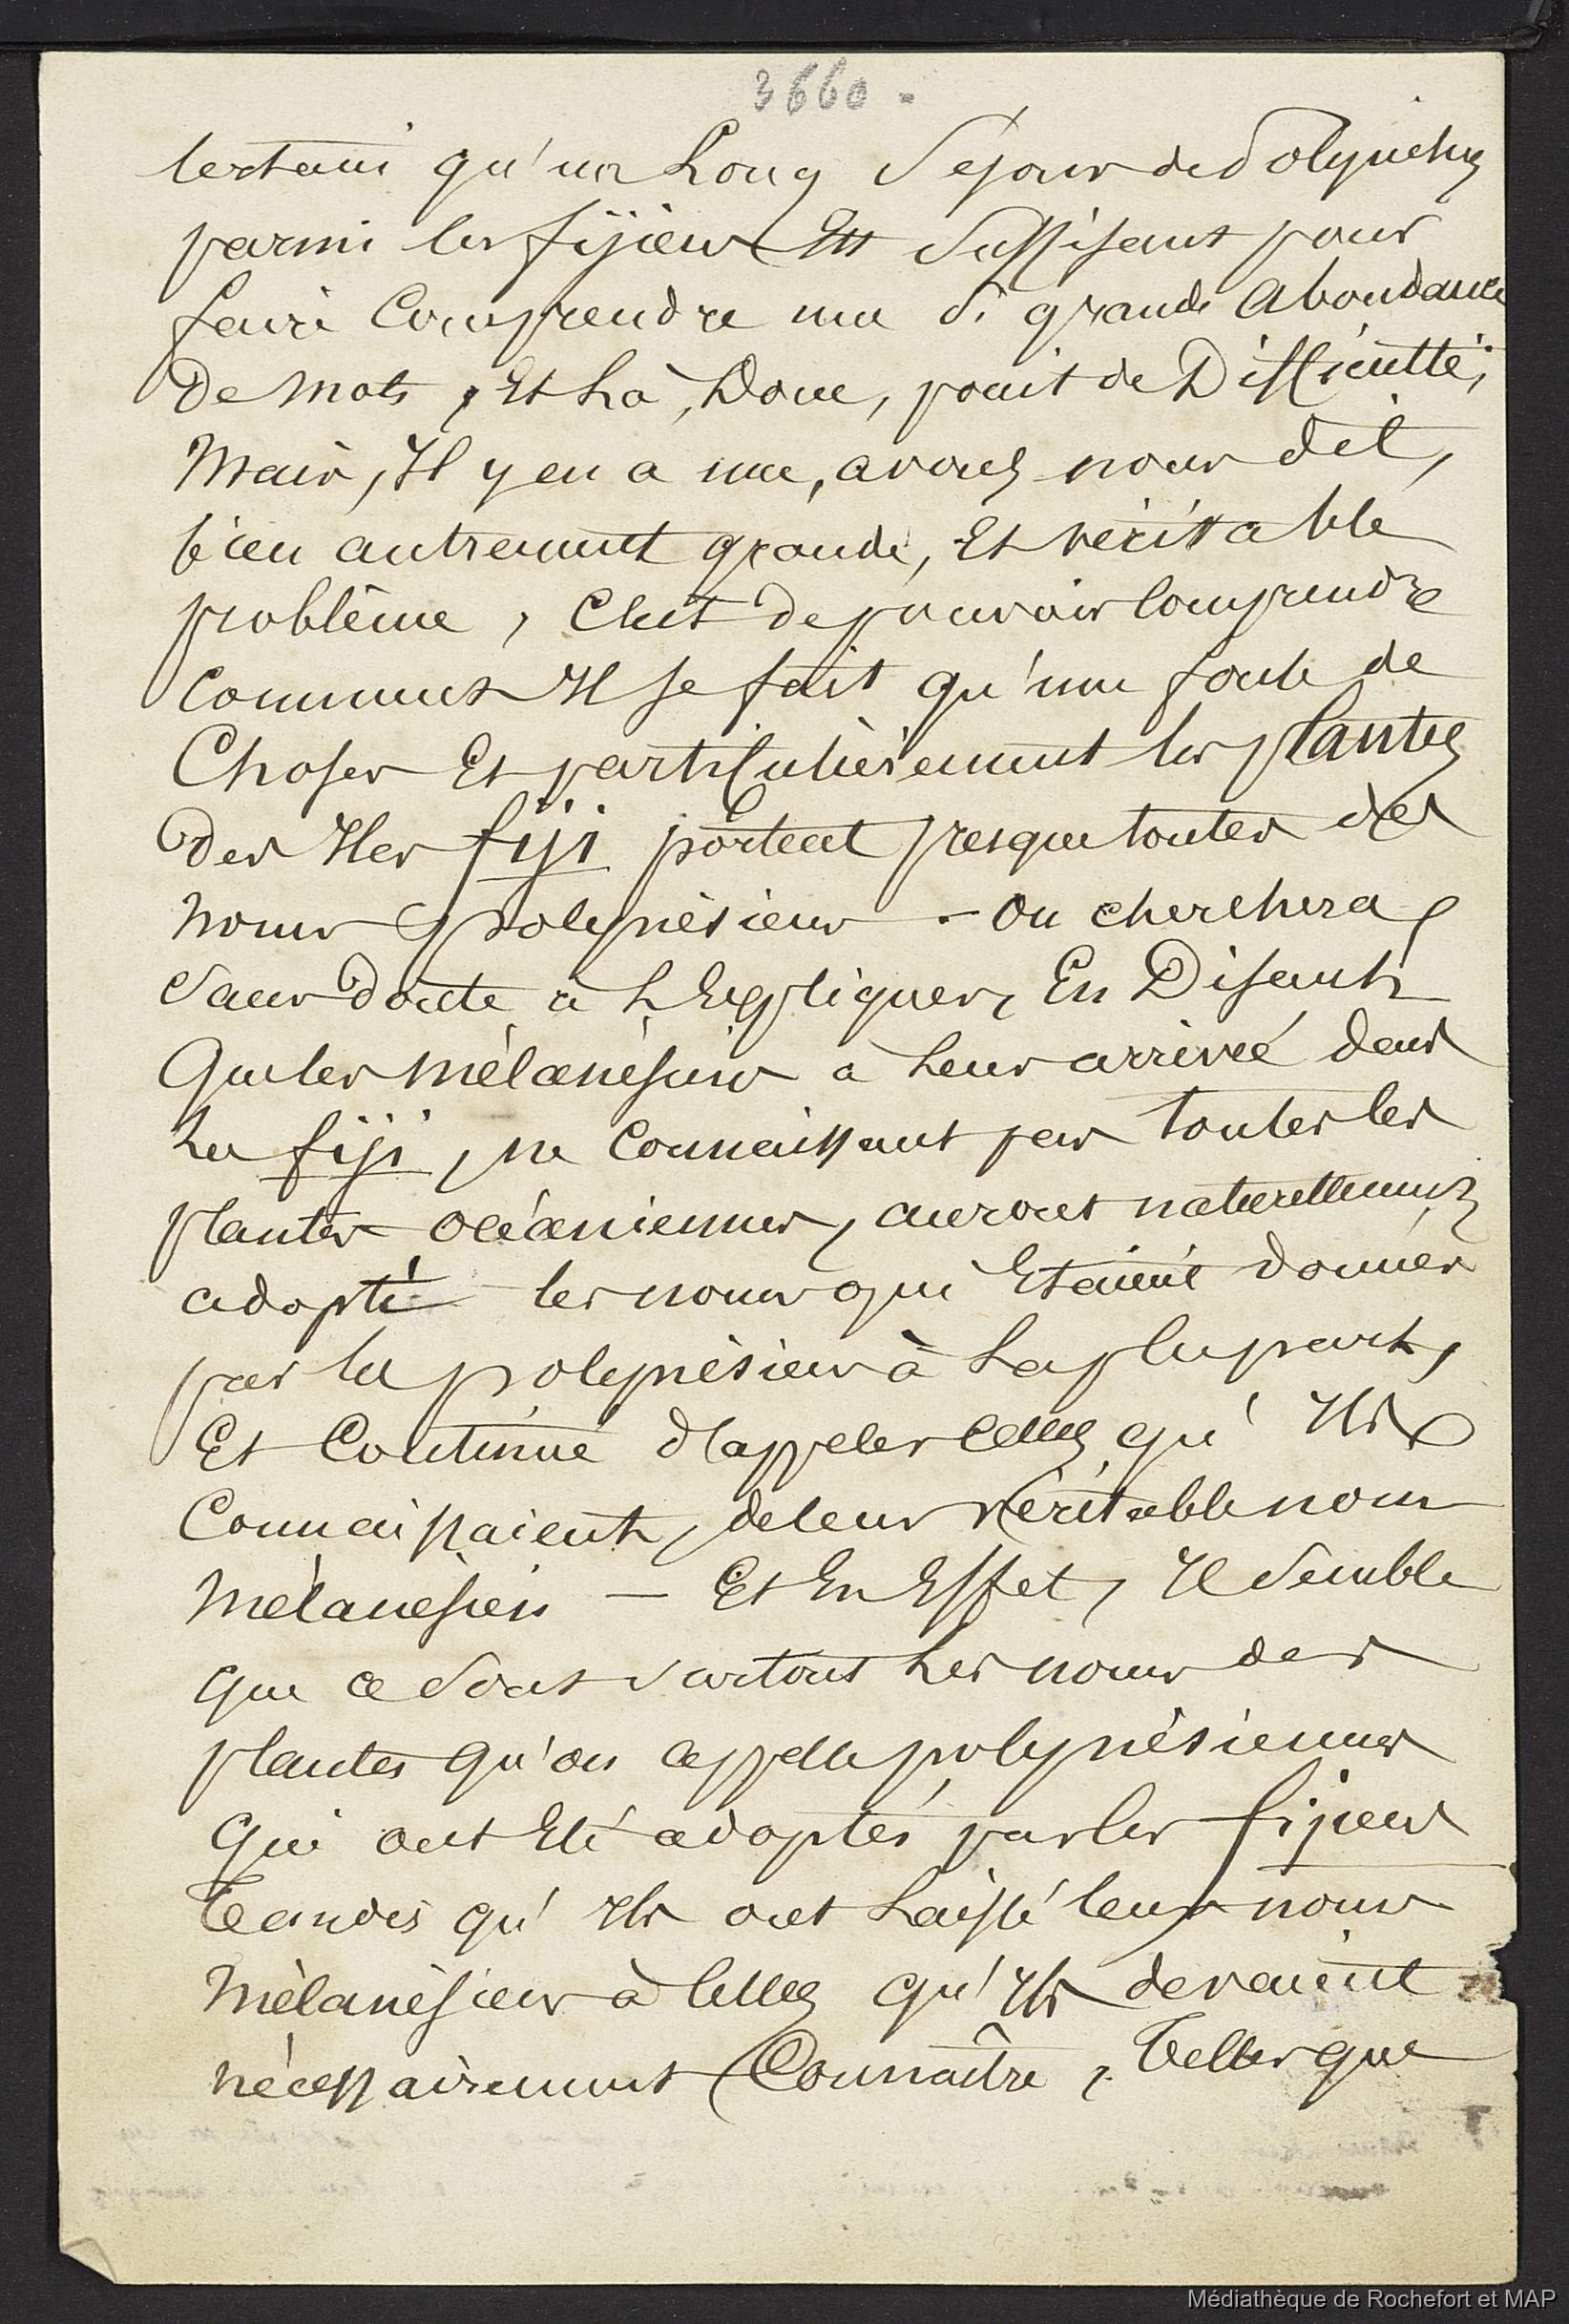 3660.
certain qu'un Long Sejour des Polynésiens
parmi les fijiens Est Suffisant pour
faire Comprendre une Si grande Abondance
de Mots, Et Là, Donc, point de Difficulté;
Mais, Il y en a une, avons nous dit,
bien autrement grande, Et véritable
problême, C'est de pouvoir Comprendre
Comment Il se fait qu'une foule de
Choses Et particulièrement les plantes
des Iles fiji portent presque toutes des
Noms polynésiens - On cherchera
Sans doute à L'Expliquer, En Disant
Que les Mélanésiens à Leur arrivée dans
Les fiji, ne Connaissant pas toutes les
plantes océaniennes, auront naturellement
adopté les noms qui Etaient donnés
par les polynésiens à La plupart,
Et Continué d'appeler Celles qu'Ils
Connaissaient, de leur véritable nom
Mélanésien — Et En Effet, Il Semble
que ce Sont Surtout Les noms des
plantes qu'on appelle polynésiennes
Qui ont Eté adoptés par les fijiens
Tandis qu'Ils ont Laissé leurs noms
Mélanésiens à Celles qu'Ils devaient
nécessairement Connaître, Telles que
Médiathèque de Rochefort et MAP